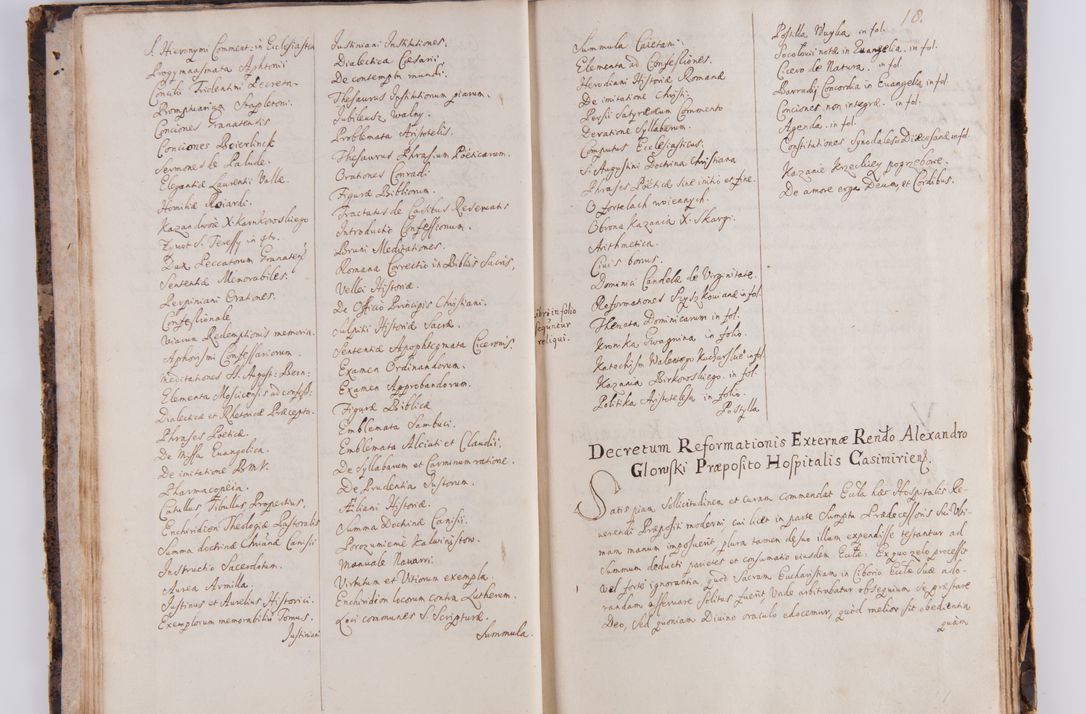 S. Hieronymi Comment: in Ecclesiasten
Progymnasmata Aphtonii
Concilii Tridentini Decreta.
Promptuarium Stapletoni.
Conciones Granatensis
Conciones Beierlinck
Sermones de Palude.
Elegantiæ Laurentii Vallæ.
Homiliæ Roiardi.
Kazan. X. Karnkowskiego
Żywot S. Teressy in qto.
Dux Peccatorum Granaten
Sententiæ Memorabiles.
Perpiniani Orationes.
Confessionale
Viarum Redemptionis memoria.
Aphorismi Confessariorum
Meditationes S. August: Bern:
Elementa ad confess:
Dialecticæ et Rhetoricæ Præcepta.
Phrases Poeticæ.
De Missa Euangelica.
De imitatione B.M.V.
Pharmacopeia.
Catullus Tibullus Propertius.
Enchiridion Theologiæ Pastoralis
Summa doctrinæ Chrianæ Canisii
Instructio Sacerdotum.
Aurea Armilla.
Justinus et Aurelius Historici.
Exemplorum memorabiliū Tomus.
Justiniani
Justiniani Institutiones.
Dialectica Cæsarii.
De contemptu mundi.
Thesaurus Institutionum piarum.
Jubileusz walny.
Problemata Aristotelis.
Thesaurus Phrasium Poeticarum.
Orationes Conradi
Figuræ Bibliorum.
Tractatus de Casibus Reseruatis
Introductio Confessionum.
Bruni Meditationes.
Romana Correctio in Bibliis Sacris,
Vellei Historiæ.
De Officio Principis Christiani.
Sulpitii Historiæ Sacræ.
Sententiæ Apophtegmata Ciceronis.
Examen Ordinandorum.
Examen Approbandorum.
Figuræ Biblicæ
Emblemata Sambuci.
Emblemata Alciati et Claudii.
De Syllabarum et Carminum ratione.
De Prudentia Justorum.
Æliani Historiæ.
Summa Doctrinæ Canisii.
Porozumienie Kalwinistow.
Manuale Nauarri.
Virtutum et Vitiorum exempla.
Enchiridion locorum contra Lutherum.
Loci communes S. Scripturæ.
Summula.
18.
Summula Caietani.
Elementa ad Confessiones.
Herodiani Historiæ Romanæ
De imitatione Christi.
Persii Satyrarum Commento
De ratione Syllabarum.
Computus Ecclesiasticus.
S. Augustini Doctrina Christiana
Phrases Poeticæ sine initio et fine.
O fortelach woiennych.
Obrona Kazania X. Skargi.
Arithmetica.
Ciuis bonus.
Dominici Candela de Virginitate.
Reformationes Szyszkovianæ in fol.
Thenata Dominicarum in fol.
Kronika Gwagnina in folio.
Katechism Walentego Kuczborskie in fol
Kazania Birkowskiego. in fol
Politika Aristotelesa in folio.
Postylla
Libri in folio
sequntur
reliqui.
Postilla Wuyka in fol.
in Euangelia. in fol.
Cicero de Natura. in fol.
Barradij Concordia in Euangelia in fol
Conciones non integræ. in fol.
Agenda. in fol.
Constitutiones Synodales Diœcesanæ in fol.
Kazanie pogrzebowe.
De amore erga Deum et Cordibus.
Decretum Reformationis Externæ Rendo Alexandro
Glowski Præposito Hospitalis Casimiriens.
Satis piam Sollicitudinem et curam commendat Eccla hæc Hospitalis Re-
uerendi Præpositi moderni cui licèt in parte Sumptu Prædecessoris Sui Vlti-
mam manum imposuerit, plura tamen de suo illum expendisse testantur ad
Summum deducti parietes et consumatio eiusdem Eccle. Ex quo zelo processit
vel forte ignorantia quod Sacram Eucharistiam in Ciborio Eccle Suæ ado-
randam asseruare solitus fuerit, Vnde arbitrabatur obsequium Se præstare
Deo, Sed quoniam Diuino oraculo edocemur, quòd melior sit obedientia
quàm